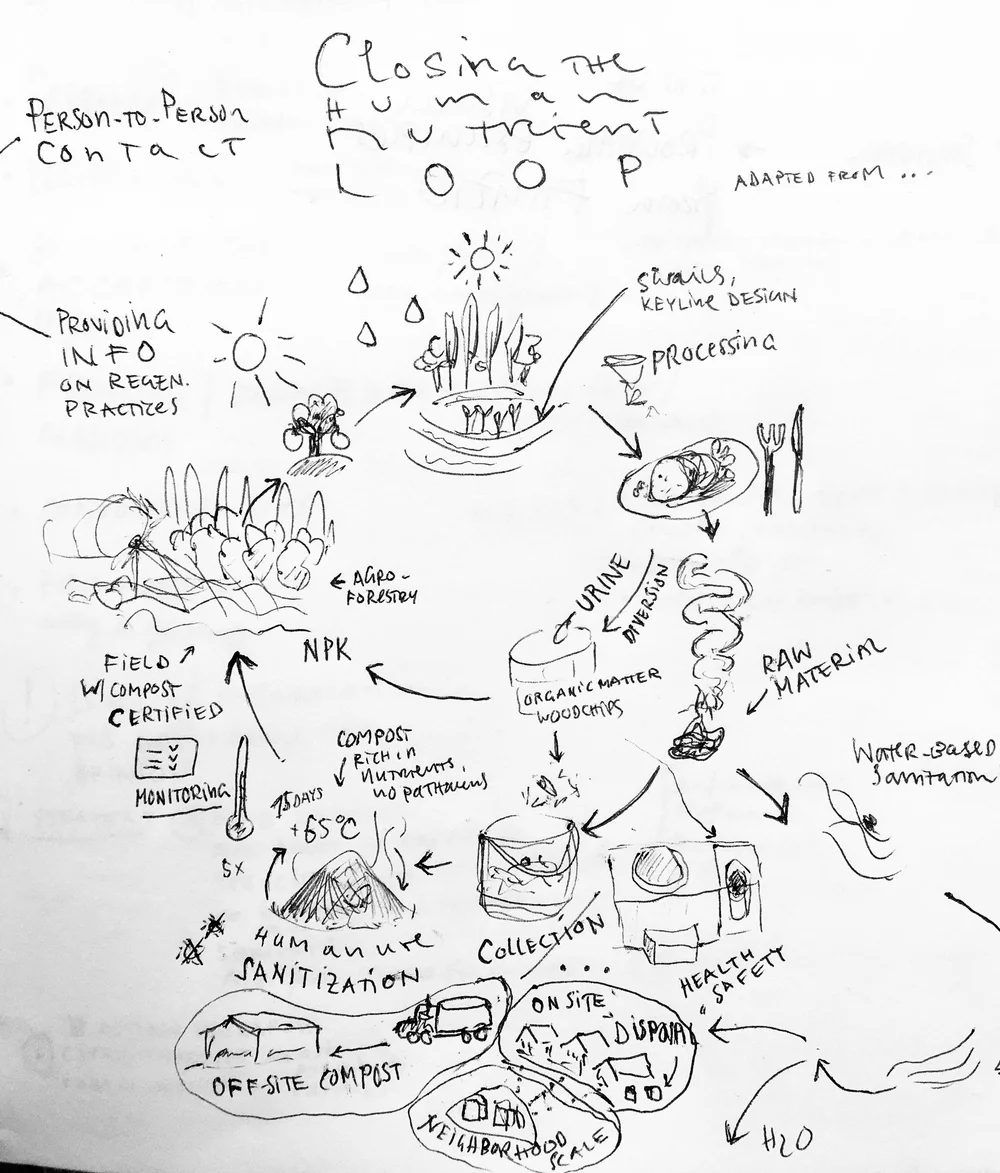 Closing THE
Human
nutrient
LOOP
PERSON-TO-PERSON
ConTacT
ADAPTED FROM ...
Swales,
KEYLINE DESIGN
PROCESSING
PROVIDING
INFO
ON REGEN.
PRACTICES
← AGRO-
FORESTRY
NPK
FIELD
W/ COMPOST
CERTIFIED
URINE
DIVERSION
ORGANIC MATTER
WOODCHIPS
RAW
MATERIAL
WATER-BASED
Sanitation
MONITORING
COMPOST
RICH in
nutrients,
no pathogens
15 DAYS
+65°C
5x
Humanure
SANITIZATION
COLLECTION
...
HEALTH
SAFETY
OFF-SITE COMPOST
ON SITE
DISPOSAL
NEIGHBORHOOD
SCALE
H2O